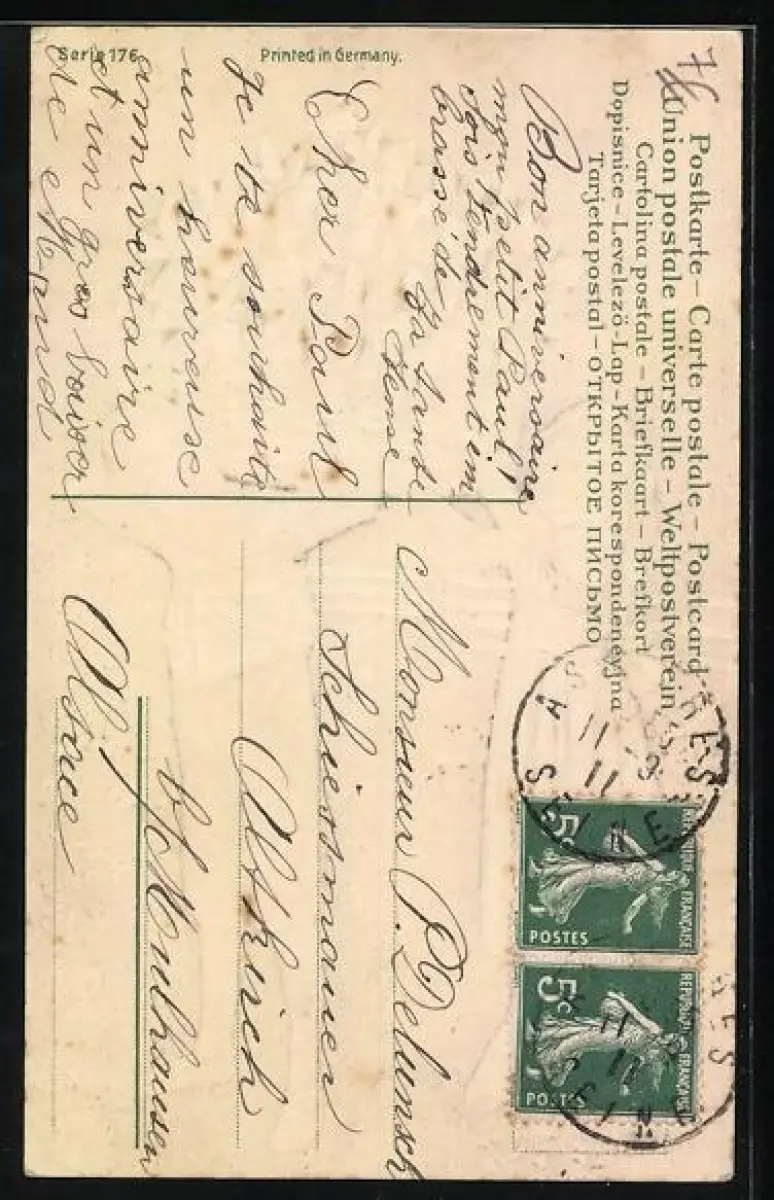 Postkarte – Carte postale – Postcard
Union postale universelle – Weltpostverein
Cartolina postale – Briefkaart – Brefkort
Dopisnice – Levelező-Lap – Karta korespondencyjna
Tarjeta postal – ОТКРЫТОЕ ПИСЬМО
76
Bon anniversaire
mon petit Paul!
Sois tendrement em
brassé de
ta tante
Cher Paul
Je te souhaite
un heureuse
anniversaire
et un gros baiser
de
Serie 176
Printed in Germany.
ASNIERES
SEINE
11
11
RÉPUBLIQUE FRANÇAISE
5c
POSTES
RÉPUBLIQUE FRANÇAISE
5c
POSTES
Monsieur P. Delunsch
Schiessmauer
Altkirch
b/ Mulhausen
Alsace